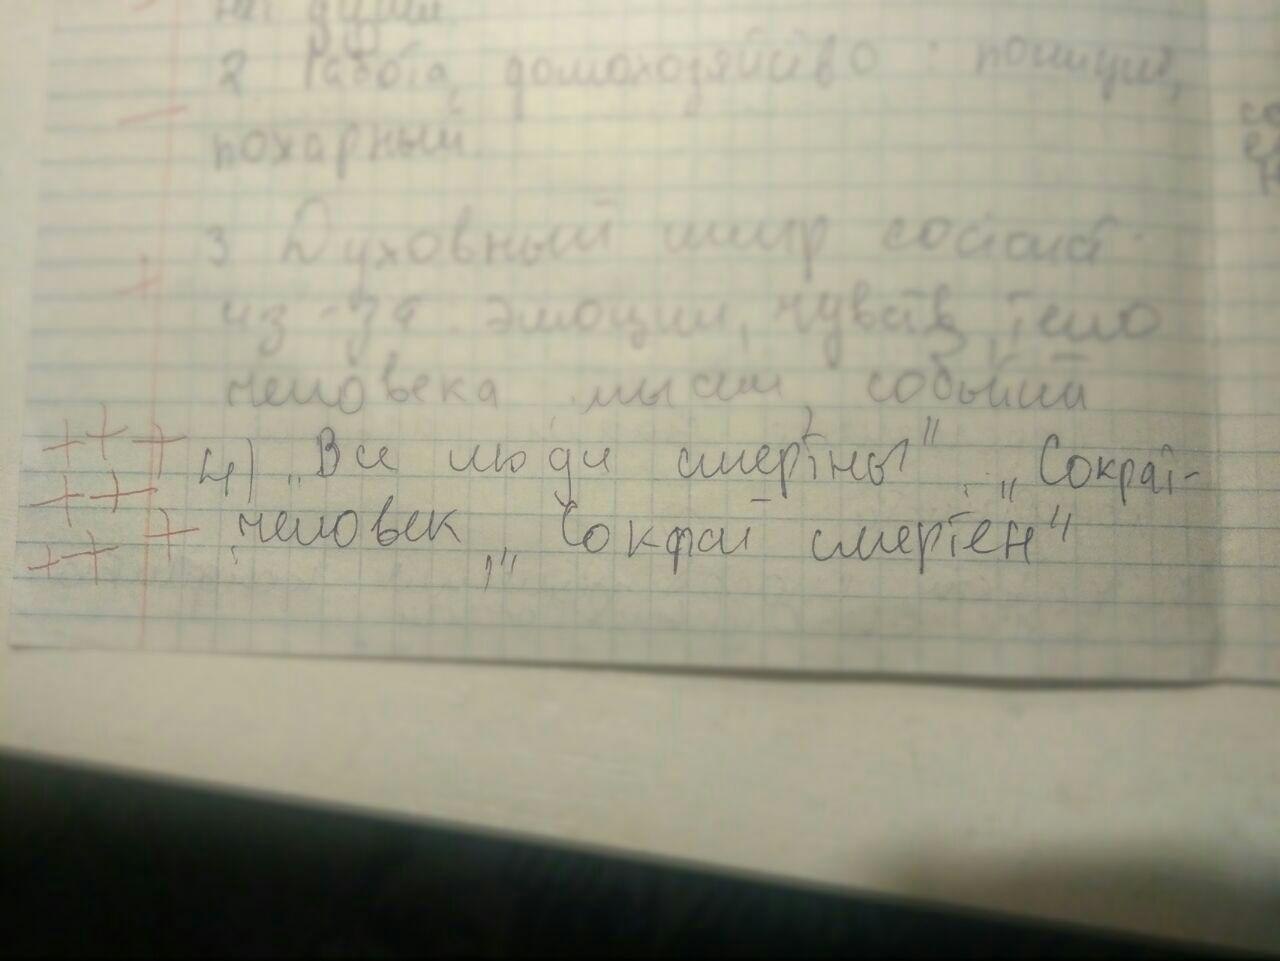 на души
2 Работа, домохозяйство : полиция,
пожарный.
3 Духовный мир состоит
из-за эмоции, чувств, тело
человека, мысли, события
4) „Все люди смертны" „Сократ-
человек„ „Сократ смертен"